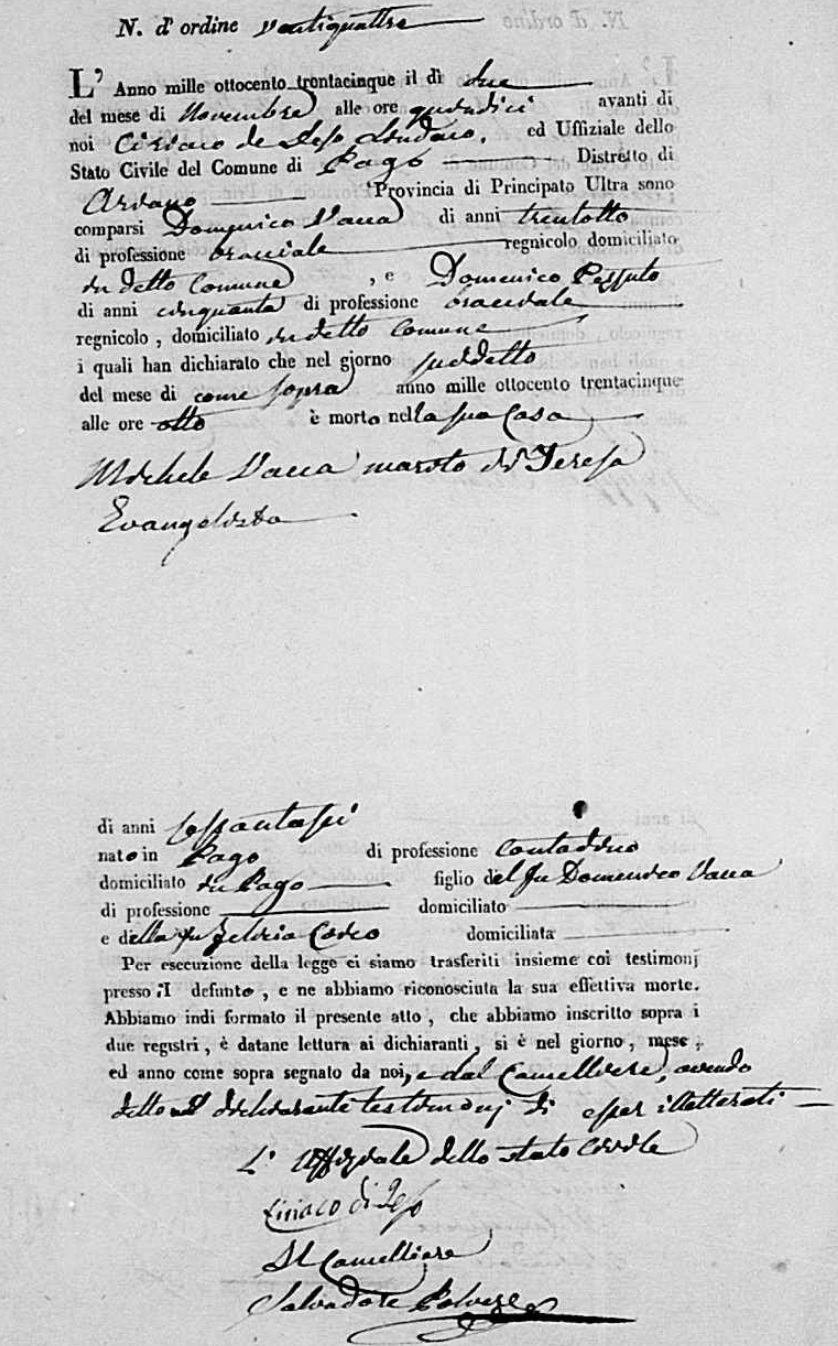 N. d' ordine ventiquattro
L' Anno mille ottocento trentacinque il dì due
del mese di Novembre alle ore quindici avanti di
noi Ciriaco de Leso Sindaco, ed Uffiziale dello
Stato Civile del Comune di Pago Distretto di
Ariano Provincia di Principato Ultra sono
comparsi Domenico Vacca di anni trentotto
di professione bracciale regnicolo domiciliato
in detto Comune, e Domenico Pessuto
di anni cinquanta di professione bracciale
regnicolo, domiciliato in detto Comune
i quali han dichiarato che nel giorno suddetto
del mese di come sopra anno mille ottocento trentacinque
alle ore otto è morto nella sua Casa
Michele Vacca marito di Teresa
Evangelista
di anni sessantasei
nato in Pago di professione Contadino
domiciliato in Pago figlio del fu Domenico Vacca
di professione domiciliato
e della fu domiciliata
Per esecuzione della legge ci siamo trasferiti insieme coi testimonj
presso il defunto, e ne abbiamo riconosciuta la sua effettiva morte.
Abbiamo indi formato il presente atto, che abbiamo inscritto sopra i
due registri, è datane lettura ai dichiaranti, si è nel giorno, mese,
ed anno come sopra segnato da noi, e dal Cancelliere, avendo
detto dichiarante testimonj di esser illetterati
L' Uffiziale dello stato Civile
Ciriaco di Leso
Il Cancelliere
Salvadore Polvere